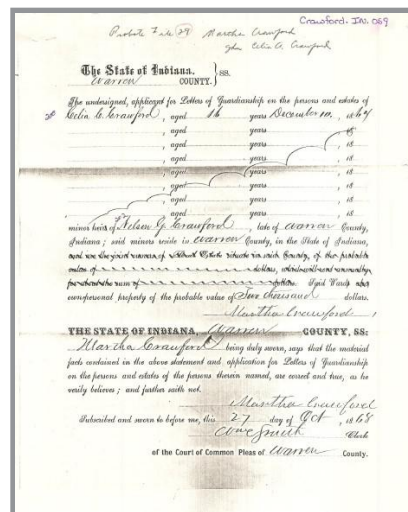 Crawford. IN. 069
Probate File 29 Martha Crawford
gdn Celia A. Crawford
The State of Indiana.
Warren COUNTY. } SS.
The undersigned, applicant for Letters of Guardianship on the persons and estates of
Celia C. Crawford, aged 16 years December 10, 1867
, aged years , 18
, aged years , 18
, aged years , 18
, aged years , 18
, aged years , 18
, aged years , 18
, aged years , 18
minor heirs of Nelson G. Crawford, late of Warren County,
Indiana; said minors reside in Warren County, in the State of Indiana,
and are the joint owners of Real Estate situate in said County, of the probable
value of dollars,
the sum of dollars. Said Wards also
own personal property of the probable value of Two thousand dollars.
Martha Crawford
THE STATE OF INDIANA, Warren COUNTY, SS:
Martha Crawford being duly sworn, says that the material
facts contained in the above statement and application for Letters of Guardianship
on the persons and estates of the persons therein named, are correct and true, as he
verily believes; and further saith not.
Martha Crawford
Subscribed and sworn to before me, this 27 day of Oct, 1868
Smith Clerk
of the Court of Common Pleas of Warren County.